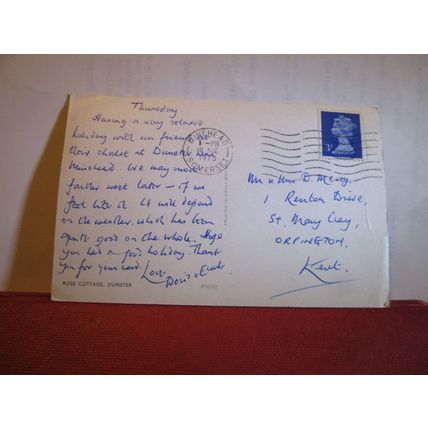 Thursday.
Having a very relaxed
holiday with our friends in
their chalet at Dunster near
Minehead. We may move
further west later – if we
feel like it. It will depend
on the weather, which has been
quite good on the whole. Hope
you had a good holiday. Thank
you for your card. Love
Doris
ROSE COTTAGE, DUNSTER
MINEHEAD
SOMERSET
3P
Mr & Mrs D.
1 Renton Drive,
St. Mary Cray,
ORPINGTON,
Kent.